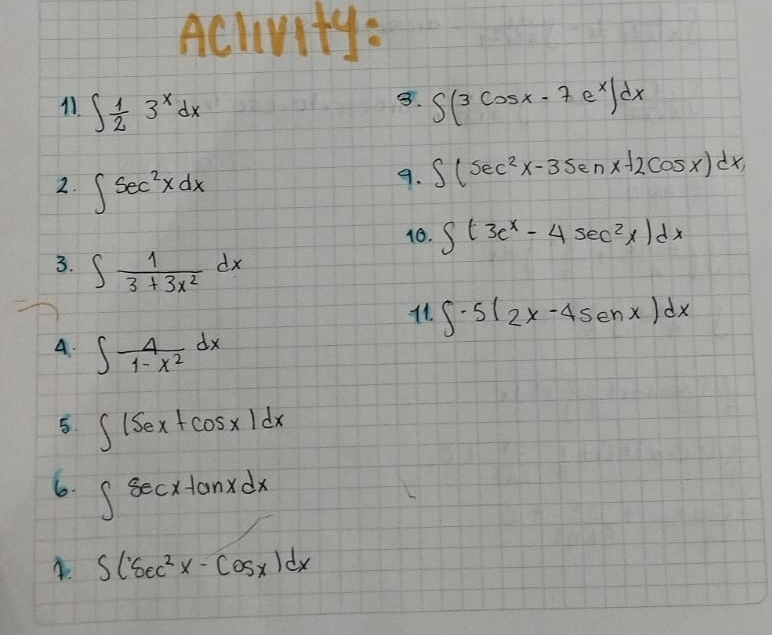 Activity:
1). ∫ 1/2 3^x dx
2. ∫ sec²x dx
3. ∫ 1/(3 + 3x²) dx
4. ∫ 4/(1 - x²) dx
5. ∫ (5ex + cosx) dx
6. ∫ secx tanx dx
7. ∫ (sec²x - cosx) dx
8. ∫ (3 cosx - 7 e^x) dx
9. ∫ (sec²x - 3senx + 2cosx) dx
10. ∫ (3e^x - 4 sec²x) dx
11. ∫ -5(2x - 4senx) dx